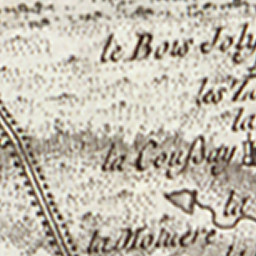 le Bois Joly
les
la
la Coussay
la
la Moliere